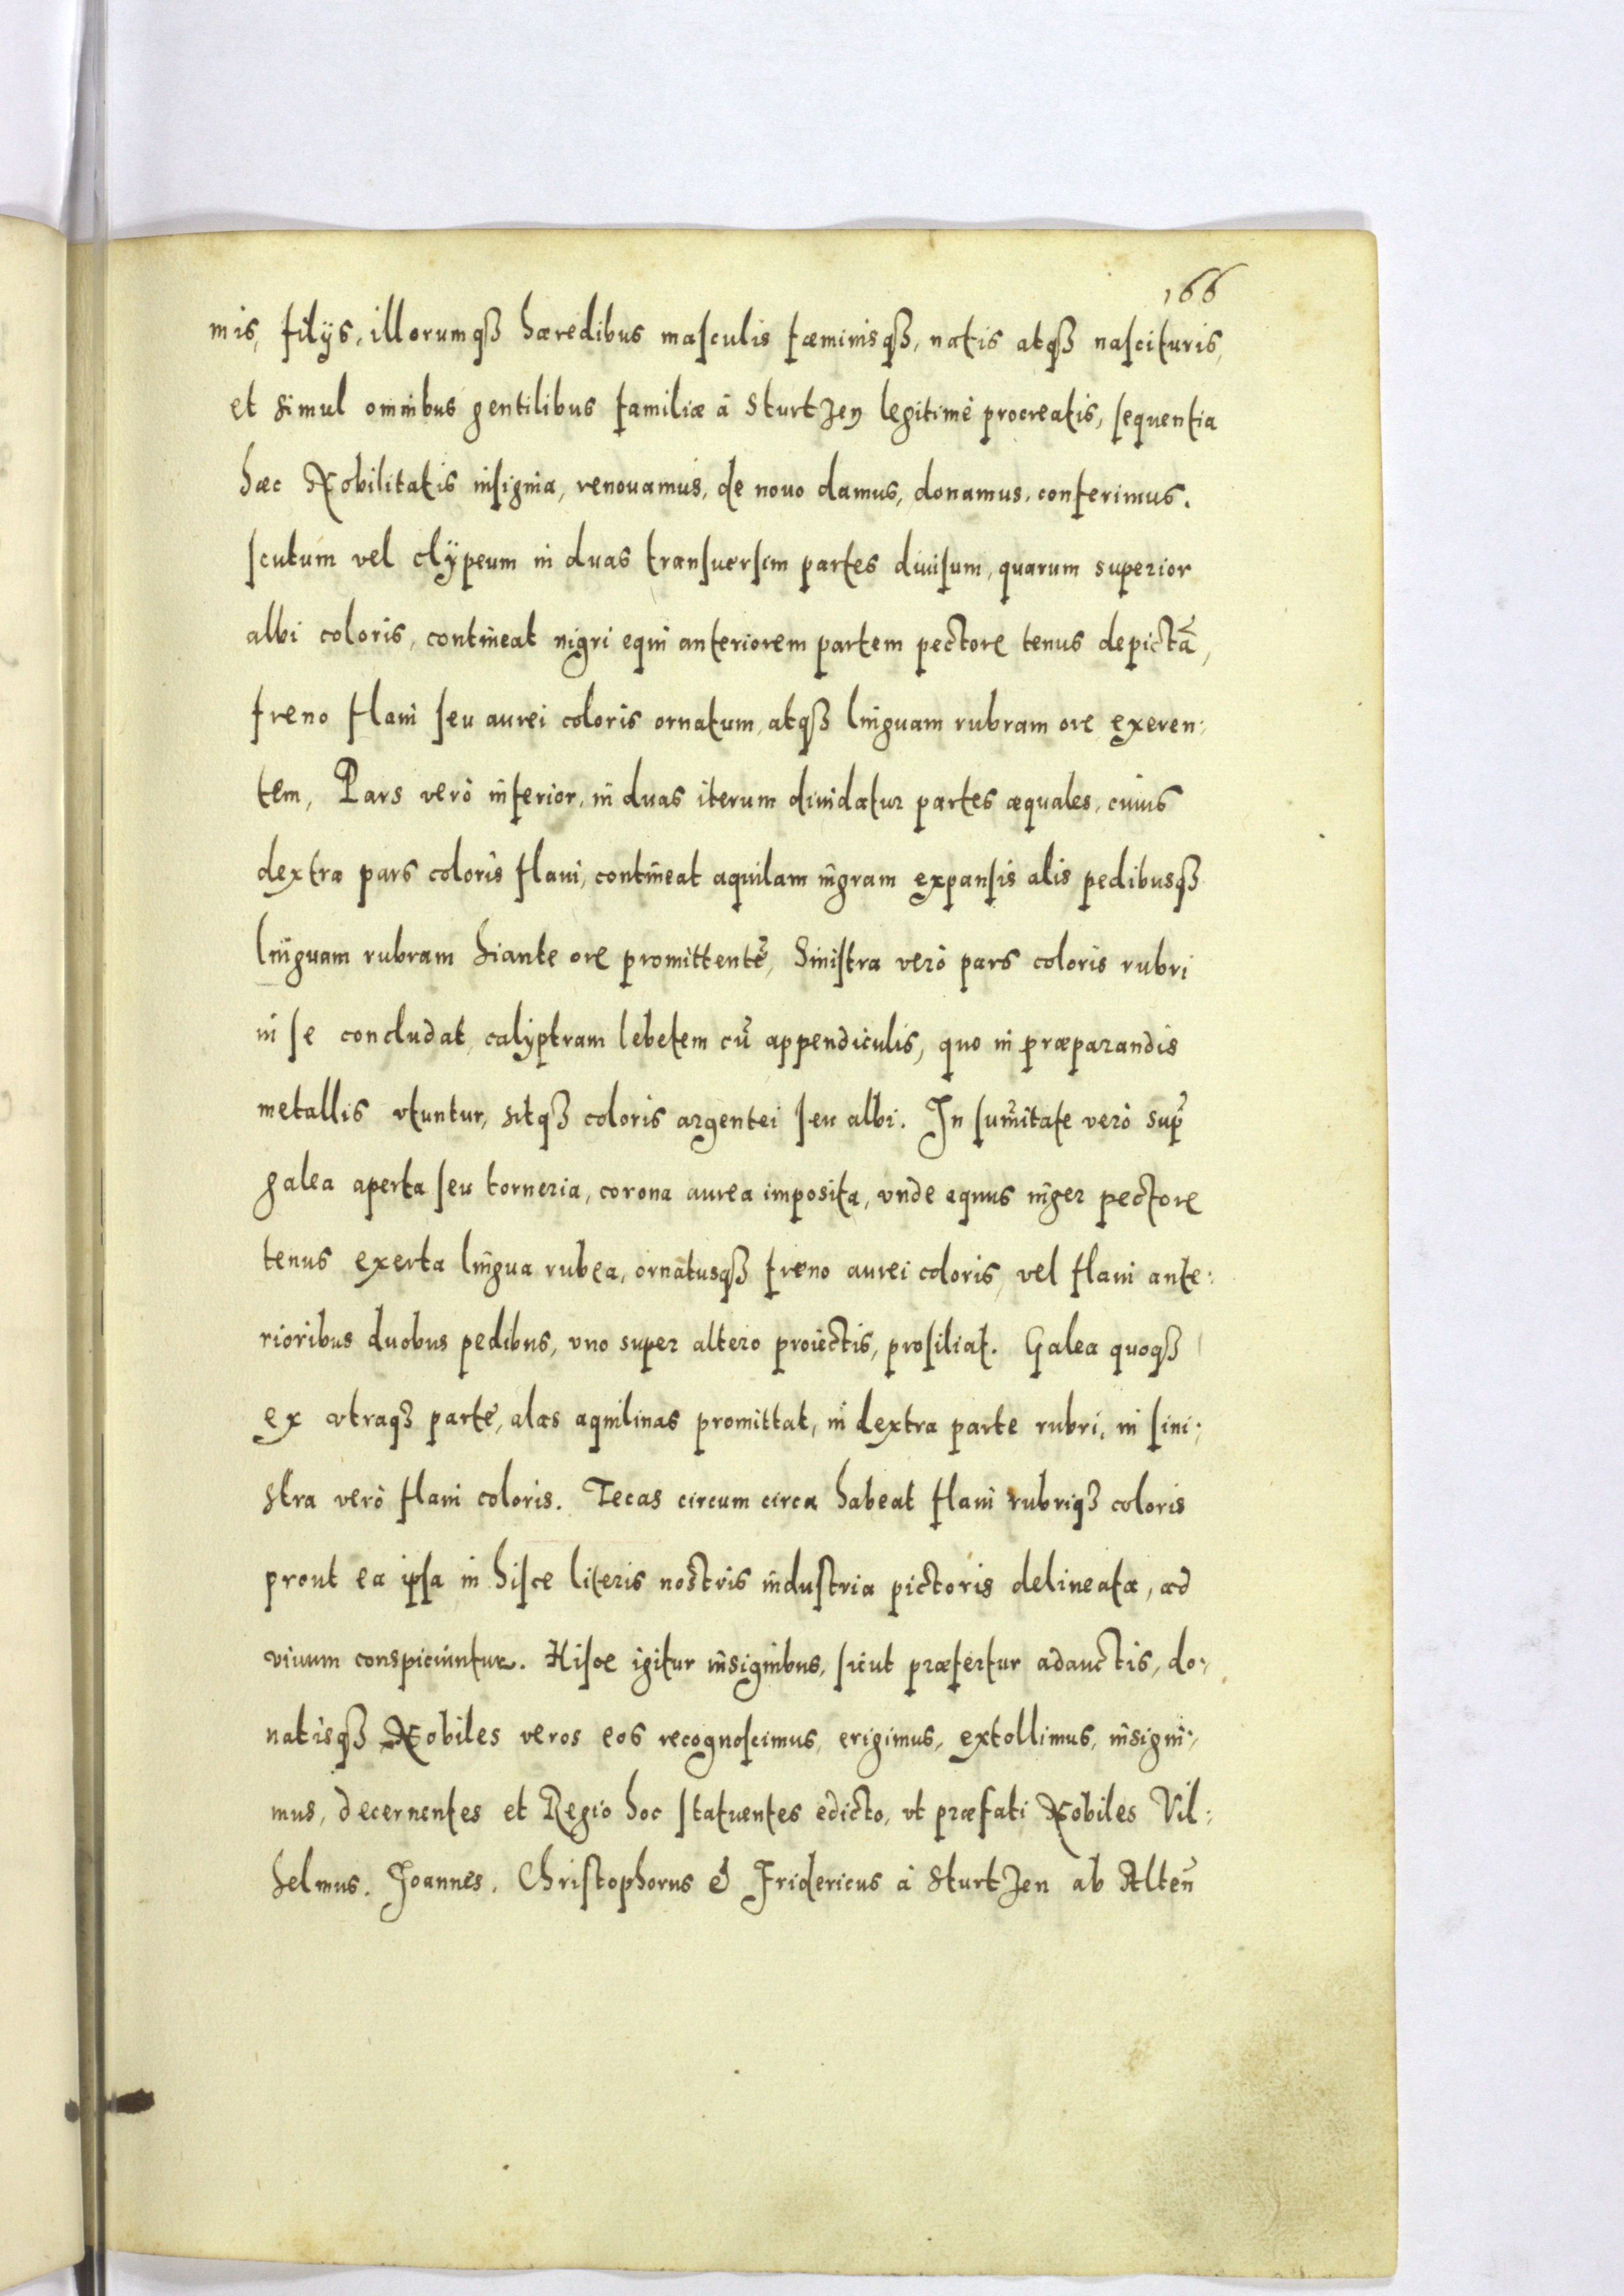 166
mis, filÿs, illorumqꝫ hæredibus masculis fæminisqꝫ, natis atqꝫ nascituris,
et simul omnibus gentilibus familiæ â Sturtzen legitimè procreatis, sequentia
hæc Nobilitatis insignia, renouamus, de nouo damus, donamus, conferimus.
scutum vel clÿpeum in duas transuersim partes diuisum, quarum superior
albi coloris, contineat nigri equi anteriorem partem pectore tenus depictã,
freno flaui seu aurei coloris ornatum, atqꝫ linguam rubram ore exeren:
tem, Pars verò inferior, in duas iterum diuidatur partes æquales, cuius
dextra pars coloris flaui, contineat aquilam nigram expansis alis pedibusqꝫ
linguam rubram hiante ore promittentẽ, Sinistra verò pars coloris rubri
in se concludat, calÿptram lebetem cũ appendiculis, quo in præparandis
metallis vtuntur, sitqꝫ coloris argentei seu albi. In sum̃itate verò sup̃
galea aperta seu torneria, corona aurea imposita, vnde equus niger pectore
tenus exerta lingua rubea, ornatusqꝫ freno aurei coloris, vel flaui ante:
rioribus duobus pedibus, vno super altero proiectis, prosiliat. Galea quoqꝫ
ex vtraqꝫ parte, alas aquilinas promittat, in dextra parte rubri, in sini:
stra verò flaui coloris. Tecas circum circa habeat flaui rubriqꝫ coloris
prout ea ipsa in hisce literis nostris industria pictoris delineata, ad
viuum conspiciuntur. Hisce igitur insignibus, sicut præfertur adauctis, do:
natisqꝫ Nobiles veros eos recognoscimus, erigimus, extollimus, insigni:
mus, decernentes et Regio hoc statuentes edicto, vt præfati Nobiles Vil:
helmus. Joannes. Christophorus & Fridericus à Sturtzen ab Alteñ